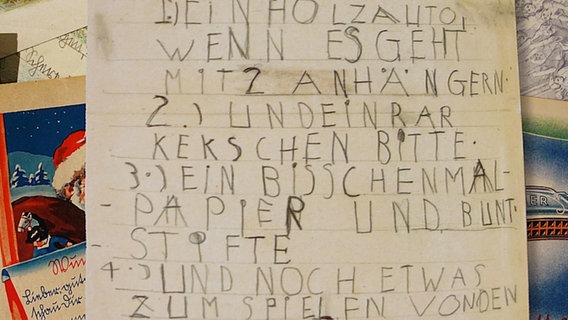 1.) EIN HOLZAUTO,
WENN ES GEHT
MIT 2 ANHÄNGERN.
2.) UND EIN RAR
KEKSCHEN BITTE.
3.) EIN BISSCHEN MAL-
- PAPIER UND BUNT-
STIFTE
4.) UND NOCH ETWAS
ZUM SPIELEN VON DEN
Lieber, gut
schau dir
ER